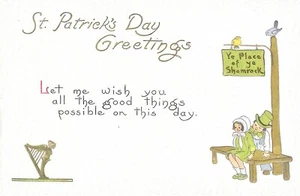 St. Patrick's Day
Greetings
Ye Place
of ye
Shamrock
Let me wish you
all the good things
possible on this day.